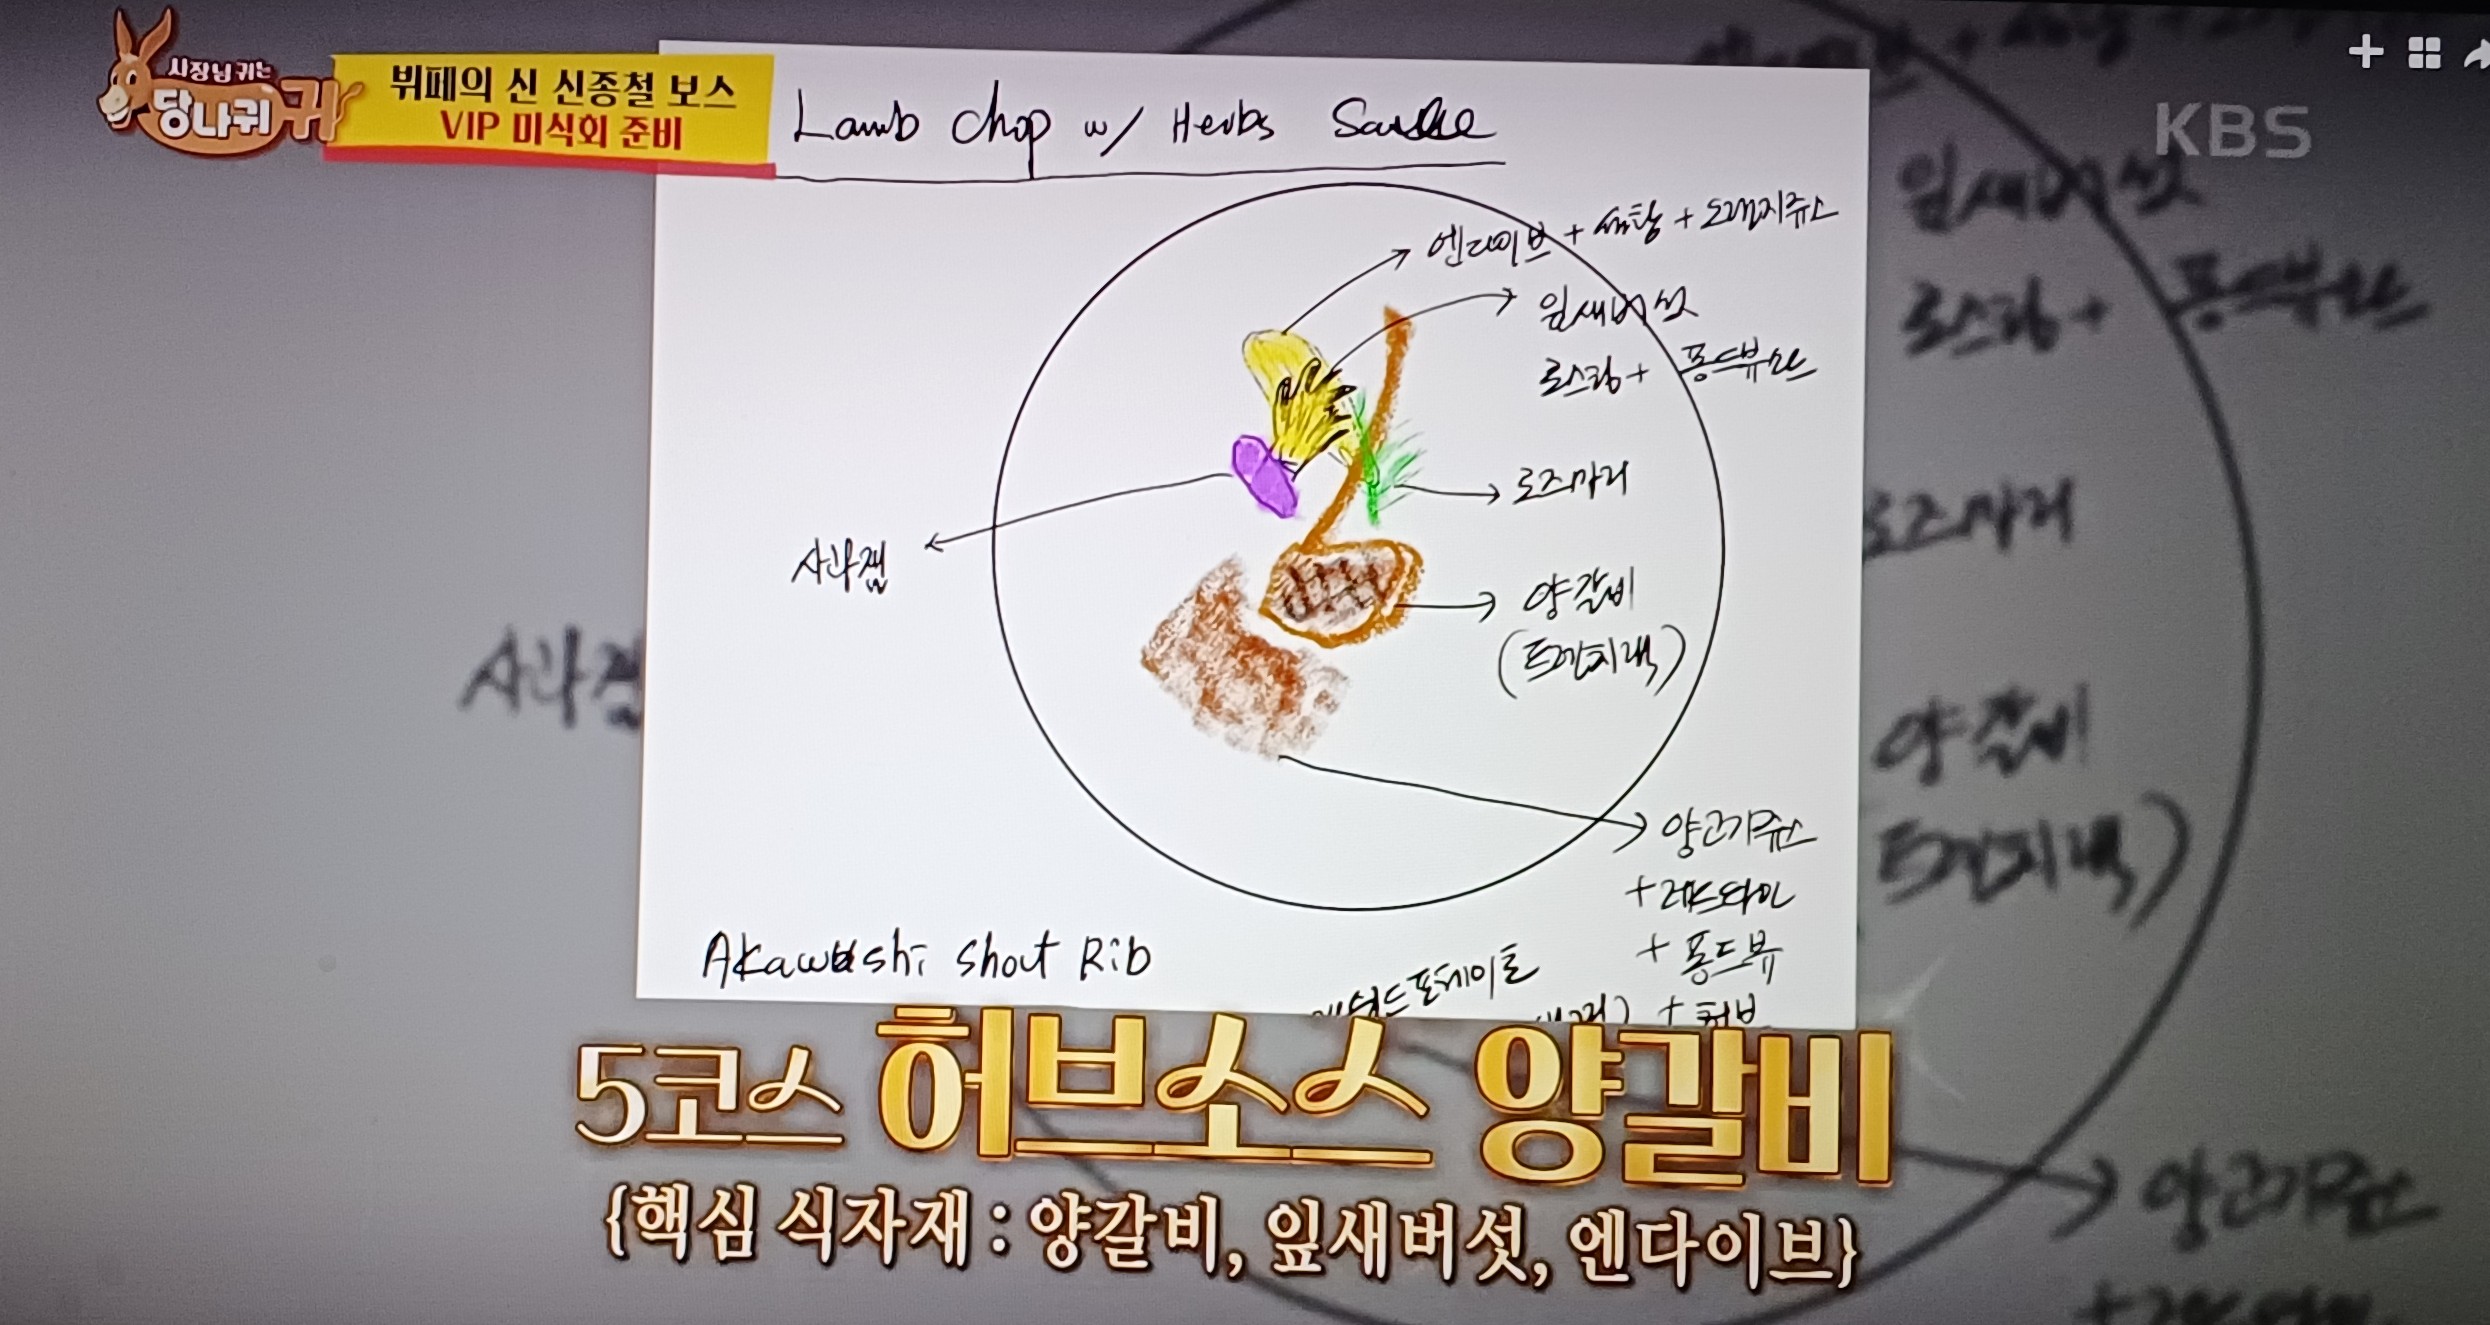 사장님 귀는
당나귀 귀
뷔페의 신 신종철 보스
VIP 미식회 준비
KBS
Lamb chop w/ Herbs Sauce
엔다이브 + 설탕 + 오렌지쥬스
잎새버섯
로스팅 +
로즈마리
사과잼
양갈비
(프렌치랙)
양고기쥬스
+ 레드와인
+ 퐁드뷔
+ 허브
Akawushi Short Rib
포테이토
잎새버섯
로스팅 +
로즈마리
사과잼
양갈비
양고기쥬스
5코스 허브소스 양갈비
{핵심 식자재 : 양갈비, 잎새버섯, 엔다이브}